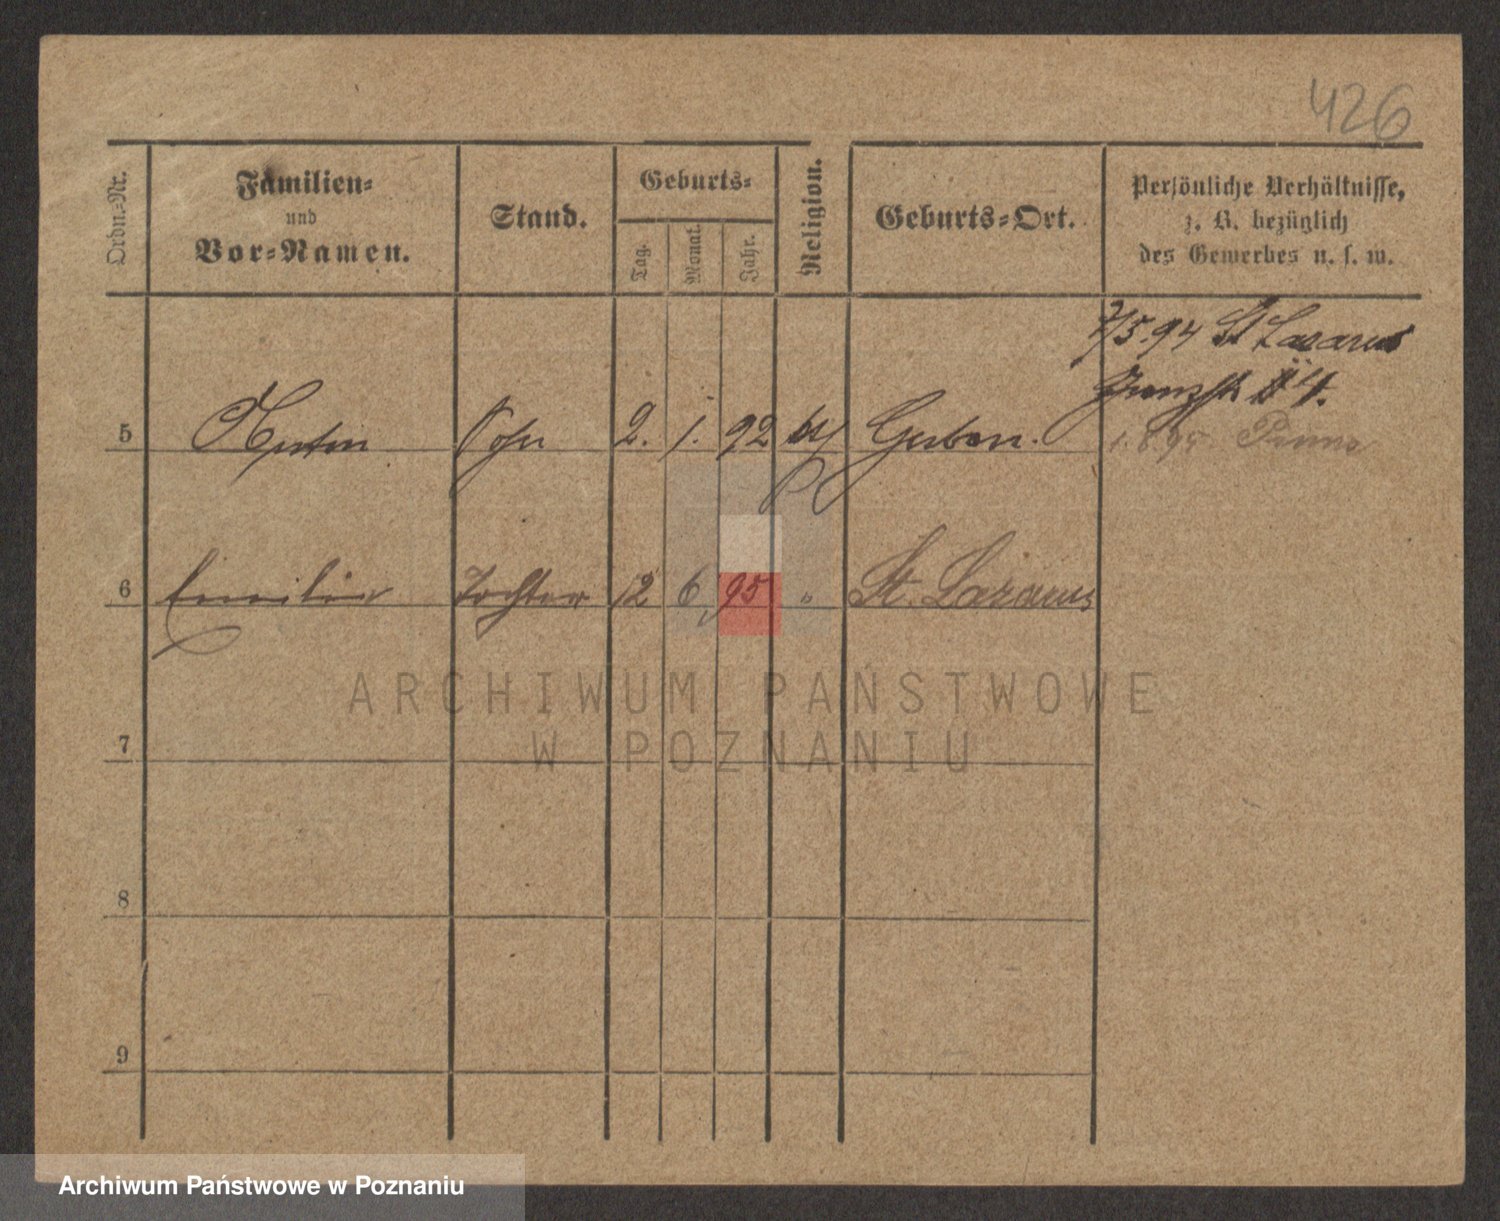 426
Ordn.-Nr.
Familien-
und
Vor-Namen.
Stand.
Geburts-
Tag.
Monat.
Jahr.
Religion.
Geburts-Ort.
Persönliche Verhältnisse,
z. B. bezüglich
des Gewerbes u. s. w.
7/5.94 St Lazarus
5 Sohn 2. 1. 92
6 Emilie Tochter 12 6 95 " St. Lazarus
7
8
9
ARCHIWUM PAŃSTWOWE
W POZNANIU
Archiwum Państwowe w Poznaniu